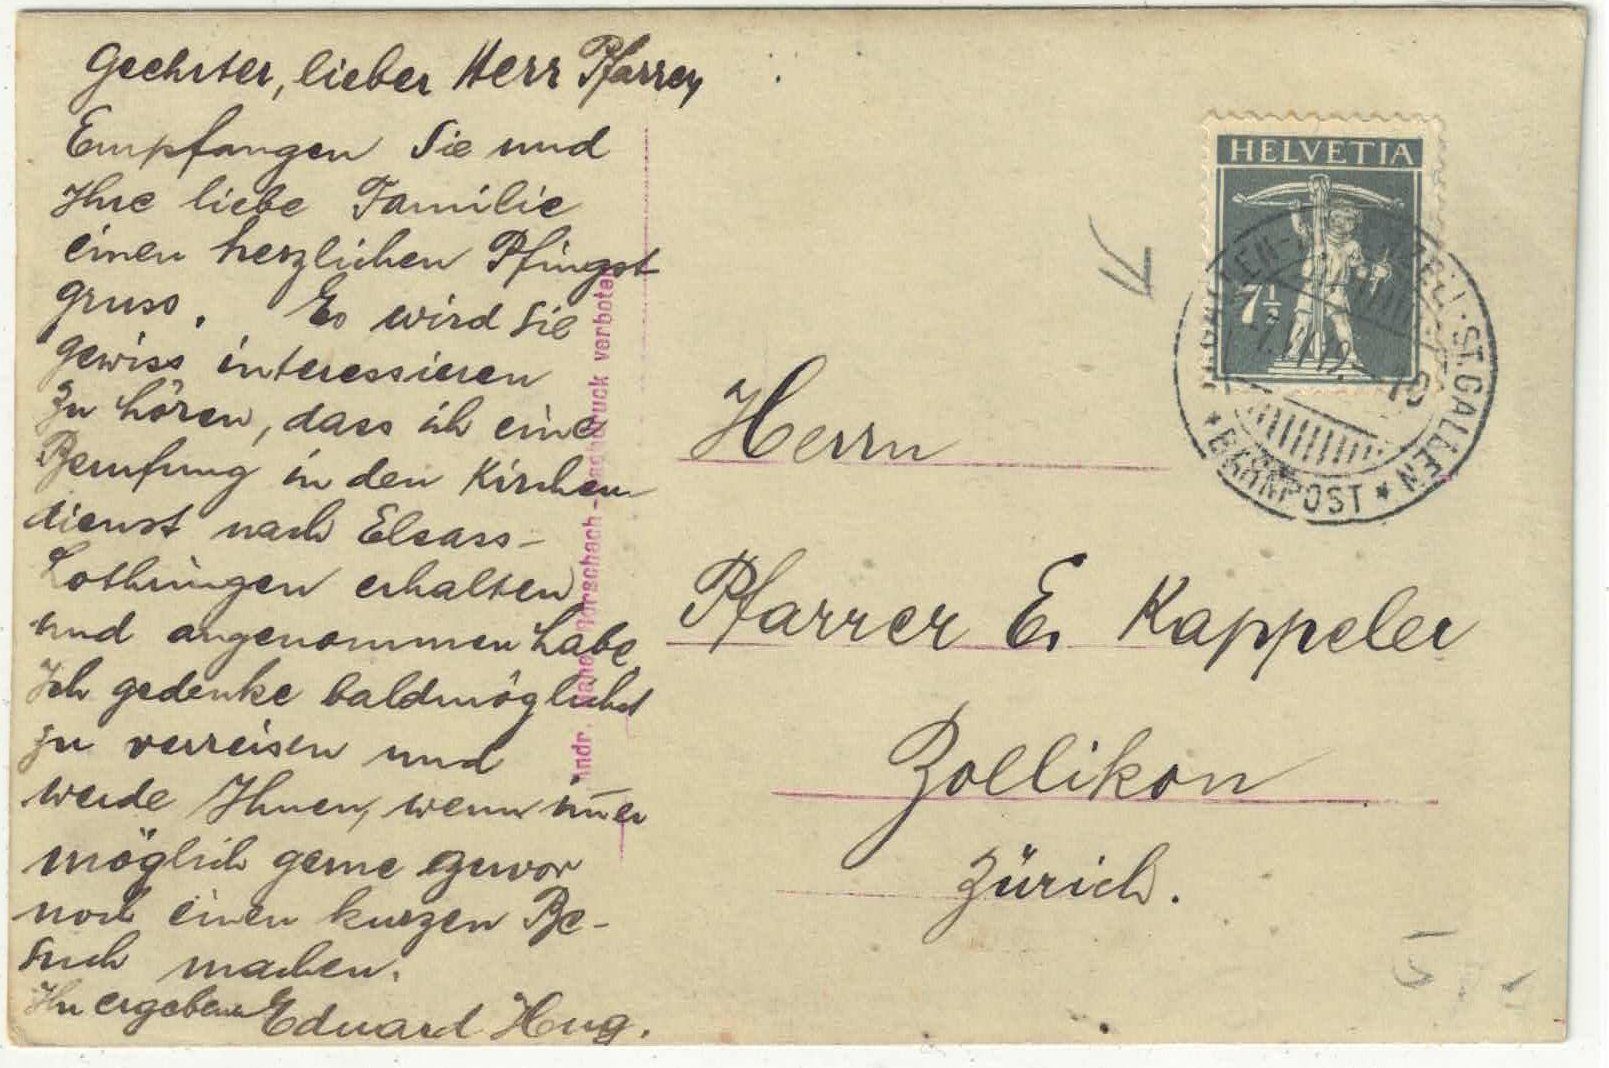 Geehrter, lieber Herr Pfarrer,
Empfangen Sie und
Ihre liebe Familie
einen herzlichen Pfingst
gruss. Es wird Sie
gewiss interessieren
zu hören, dass ich eine
Berufung in den Kirchen
dienst nach Elsass-
Lothringen erhalten
und angenommen habe.
Ich gedenke baldmöglichst
zu verreisen und
werde Ihnen, wenn im̄er
möglich gerne zuvor
noch einen kurzen Be-
such machen.
Ihr ergebener Eduard Hug.
Rorschach - Nachdruck verboten
HELVETIA
7½
ST. GALLEN
BAHNPOST
Herrn
Pfarrer E. Kappeler
Zollikon
Zürich.